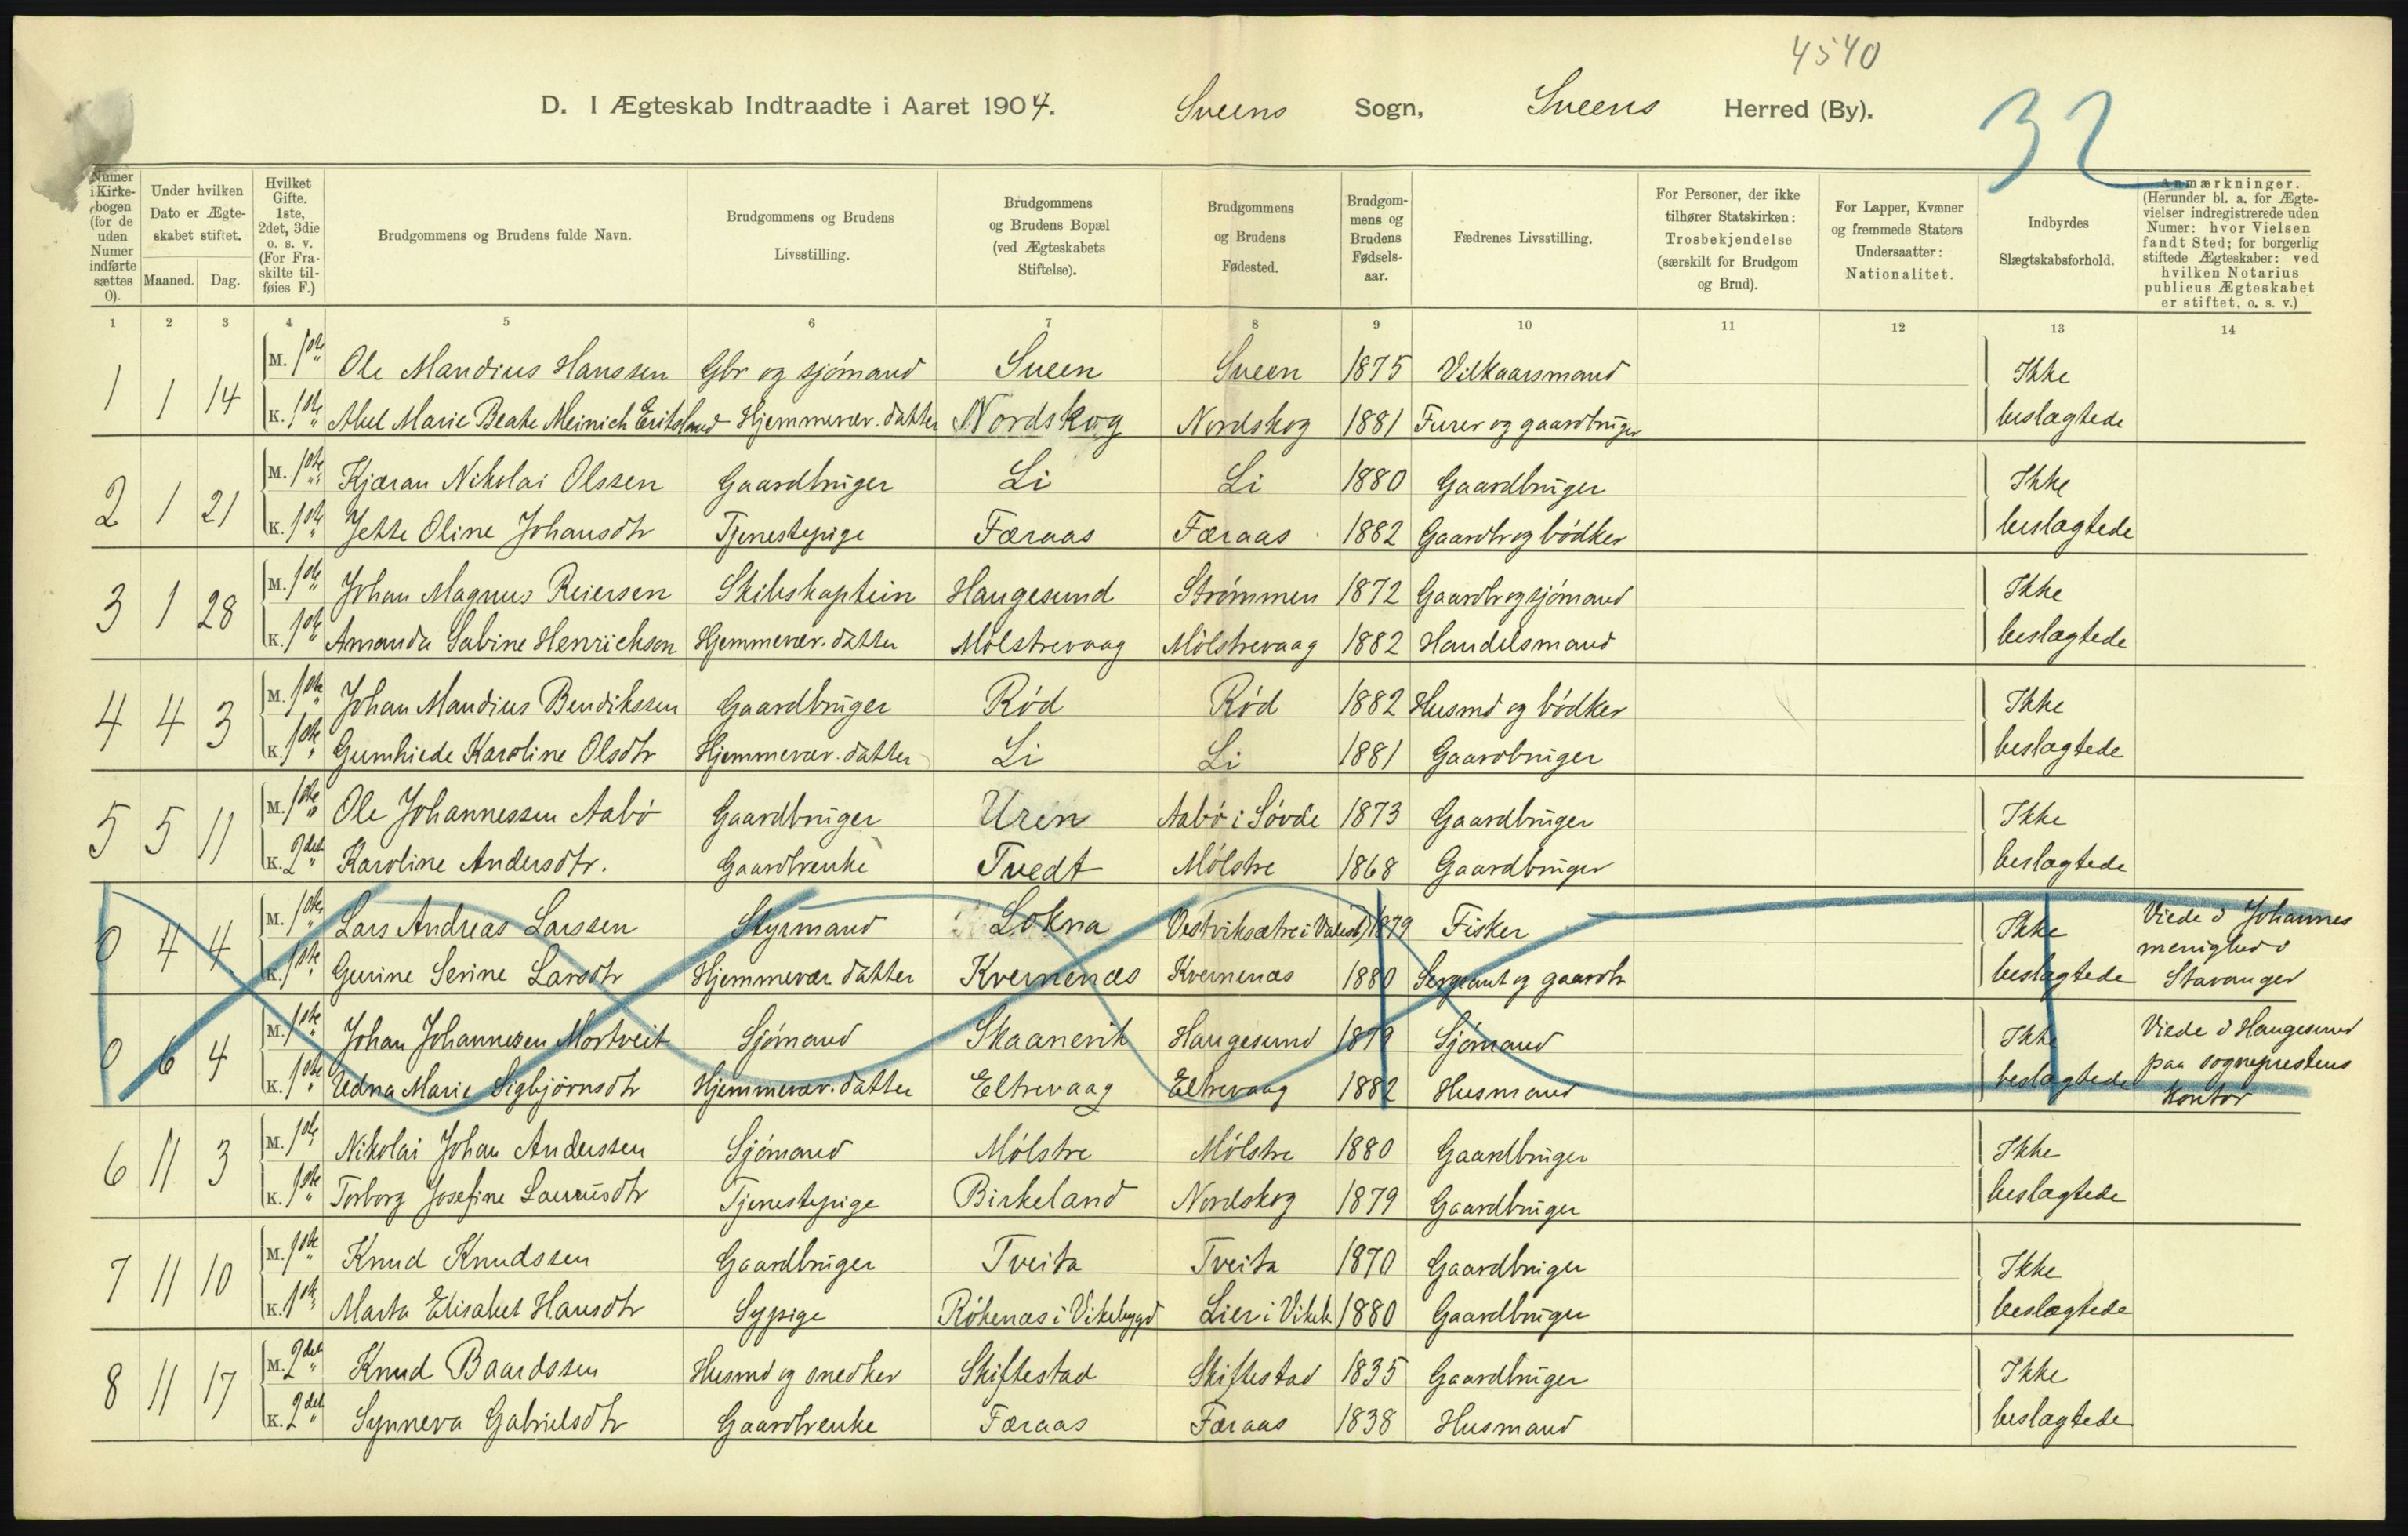 4540
D. I Ægteskab Indtraadte i Aaret 1904. Sveens Sogn, Sveens Herred (By).
32
Numer i Kirkebogen (for de uden Numer indførte sættes 0).
Under hvilken Dato er Ægteskabet stiftet.
Maaned. Dag.
Hvilket Gifte. 1ste, 2det, 3die o. s. v. (For Fraskilte tilføies F.)
Brudgommens og Brudens fulde Navn.
Brudgommens og Brudens Livsstilling.
Brudgommens og Brudens Bopæl (ved Ægteskabets Stiftelse).
Brudgommens og Brudens Fødested.
Brudgommens og Brudens Fødselsaar.
Fædrenes Livsstilling.
For Personer, der ikke tilhører Statskirken: Trosbekjendelse (særskilt for Brudgom og Brud).
For Lapper, Kvæner og fremmede Staters Undersaatter: Nationalitet.
Indbyrdes Slægtskabsforhold.
Anmærkninger. (Herunder bl. a. for Ægtevielser indregistrerede uden Numer: hvor Vielsen fandt Sted; for borgerlig stiftede Ægteskaber: ved hvilken Notarius publicus Ægteskabet er stiftet, o. s. v.)
1 2 3 4 5 6 7 8 9 10 11 12 13 14
1 1 14 M. 1ste Ole Mandius Hanssen Gbr og sjømand Sveen Sveen 1875 Vilkaarsmand Ikke
K. 1ste Abel Marie Beate Meinich Eritsland Hjemmevær. datter Nordskog Nordskog 1881 Furer og gaardbruger beslægtede
2 1 21 M. 1ste Kjæran Nikolai Olssen Gaardbruger Li Li 1880 Gaardbruger Ikke
K. 1ste Jette Oline Johansdtr Tjenestepige Færaas Færaas 1882 Gaardbr og bødker beslægtede
3 1 28 M. 1ste Johan Magnus Reiersen Skibskaptein Haugesund Strømmen 1872 Gaardbr og sjømand Ikke
K. 1ste Amanda Sabine Henrichsen Hjemmevær. datter Mølstrevaag Mølstrevaag 1882 Handelsmand beslægtede
4 4 3 M. 1ste Johan Mandius Bendikssen Gaardbruger Rød Rød 1882 Husmd og bødker Ikke
K. 1ste Gunhilde Karoline Olsdtr Hjemmevær. datter Li Li 1881 Gaardbruger beslægtede
5 5 11 M. 1ste Ole Johannessen Aabø Gaardbruger Uren Aabø i Søvde 1873 Gaardbruger Ikke
K. 2det Karoline Andersdtr. Gaardbrenke Tvedt Mølstre 1868 Gaardbruger beslægtede
0 4 4 M. 1ste Lars Andreas Larssen Styrmand Lokna 1879 Fisker Ikke Viede i Johannes
menighed i
K. 1ste Gurine Serine Larsdtr Hjemmevær. datter Kvernenæs Kvernenæs 1880 Sergeant og gaardbr beslægtede Stavanger
0 6 4 M. 1ste Johan Johannesen Mortveit Sjømand Skaanevik Haugesund 1879 Sjømand Ikke Viede i Haugesund
paa sogneprestens
K. 1ste Marie Sigbjørnsdtr Hjemmevær. datter Eltrevaag Eltrevaag 1882 Husmand beslægtede Kontor
6 11 3 M. 1ste Nikolai Johan Anderssen Sjømand Mølstre Mølstre 1880 Gaardbruger Ikke
K. 1ste Torborg Josefine Tjenestepige Birkeland Nordskog 1879 Gaardbruger beslægtede
7 11 10 M. 1ste Knud Knudssen Gaardbruger Tveita Tveita 1870 Gaardbruger Ikke
K. 1ste Marta Elisabet Hansdtr Sypige Røkenæs i Vikebygd Lier i Vikeb 1880 Gaardbruger beslægtede
8 11 17 M. 2det Knud Baardssen Husmd og snedker Skiftestad Skiftestad 1835 Gaardbruger Ikke
K. 2det Synneva Gabrielsdtr Gaardbrenke Færaas Færaas 1838 Husmand beslægtede